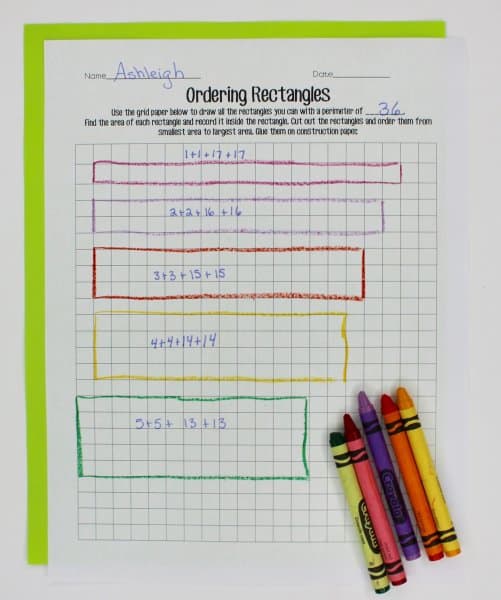 Name Ashleigh Date
Ordering Rectangles
Use the grid paper below to draw all the rectangles you can with a perimeter of 36
Find the area of each rectangle and record it inside the rectangle. Cut out the rectangles and order them from
smallest area to largest area. Glue them on construction paper.
1+1+17+17
2+2+16+16
3+3+15+15
4+4+14+14
5+5+ 13+13
Crayola
Crayola